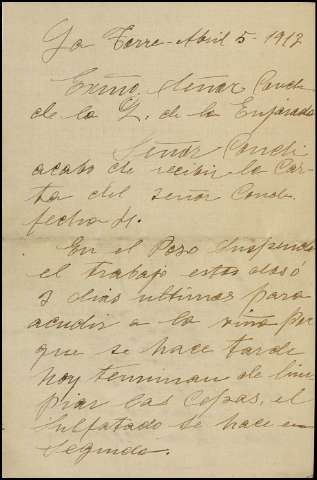 La Torre - Abril 5 - 1912
Exmo. Señor Conde
de la V. de la Enjarada
Señor Conde:
acabo de recibir la Car-
ta del señor Conde
fecha 4.
En el Pozo suspendo
el trabajo estos dos ó
3 dias ultimos para
acudir a la viña por
que se hace tarde
hoy terminan de lim
piar las Cepas, el
sulfatado se hace en
segunda.